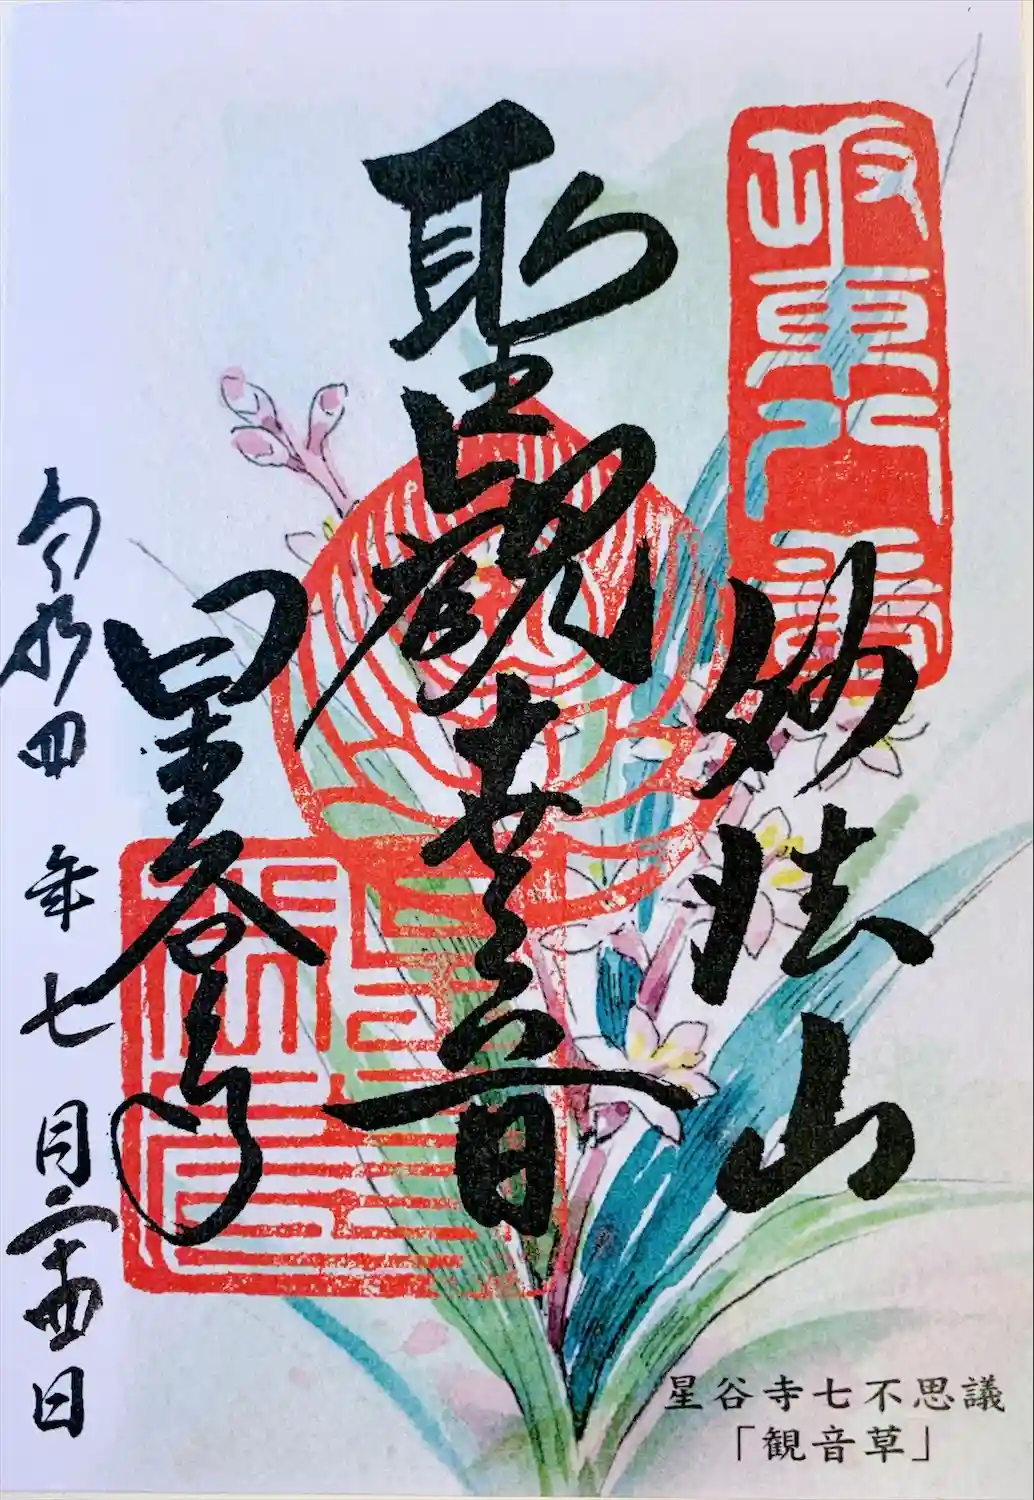 妙法山
聖観世音
星谷寺
令和四年七月二十四日
星谷寺七不思議
「観音草」